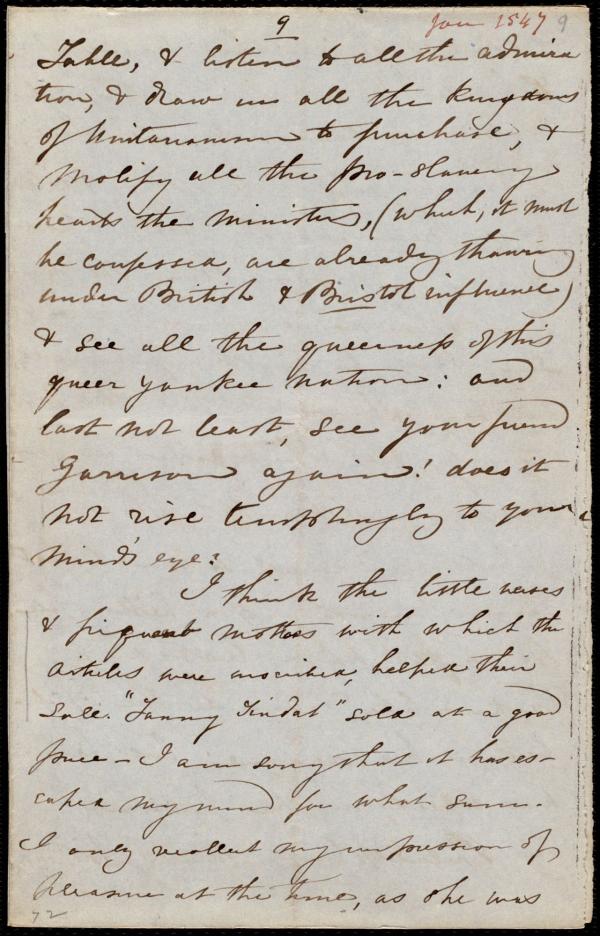 9
Jan 1847 9
Table, & listen to all the admira
tion, & draw in all the kingdoms
of Unitarianism to purchase, &
molify all the pro-slavery
hearts the ministers, (which, it must
be confessed, are already thawing
under British & Bristol influence)
& see all the queerness of this
queer yankee nation: and
last not least, see your friend
Garrison again! does it
not rise temptingly to your
mind's eye?
I think the little verses
& piquant mottoes with which the
articles were inscribed, helped their
sale. "Fanny Tindal" sold at a good
price - I am sorry that it has es-
caped my mind for what sum.
I only recollect my impression of
pleasure at the time, as she was
72